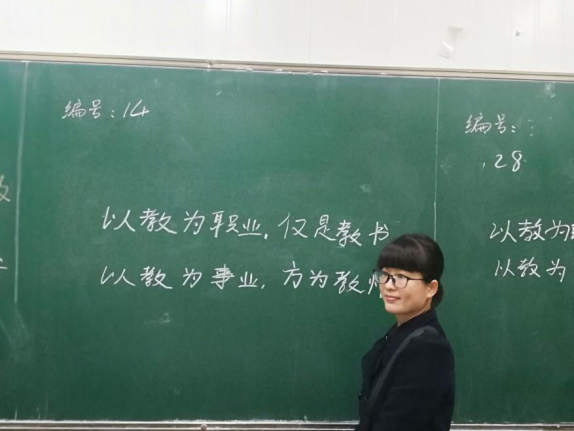 编号:14
以教为职业,仅是教书
以教为事业,方为教师
编号:
28
以教为
以教为